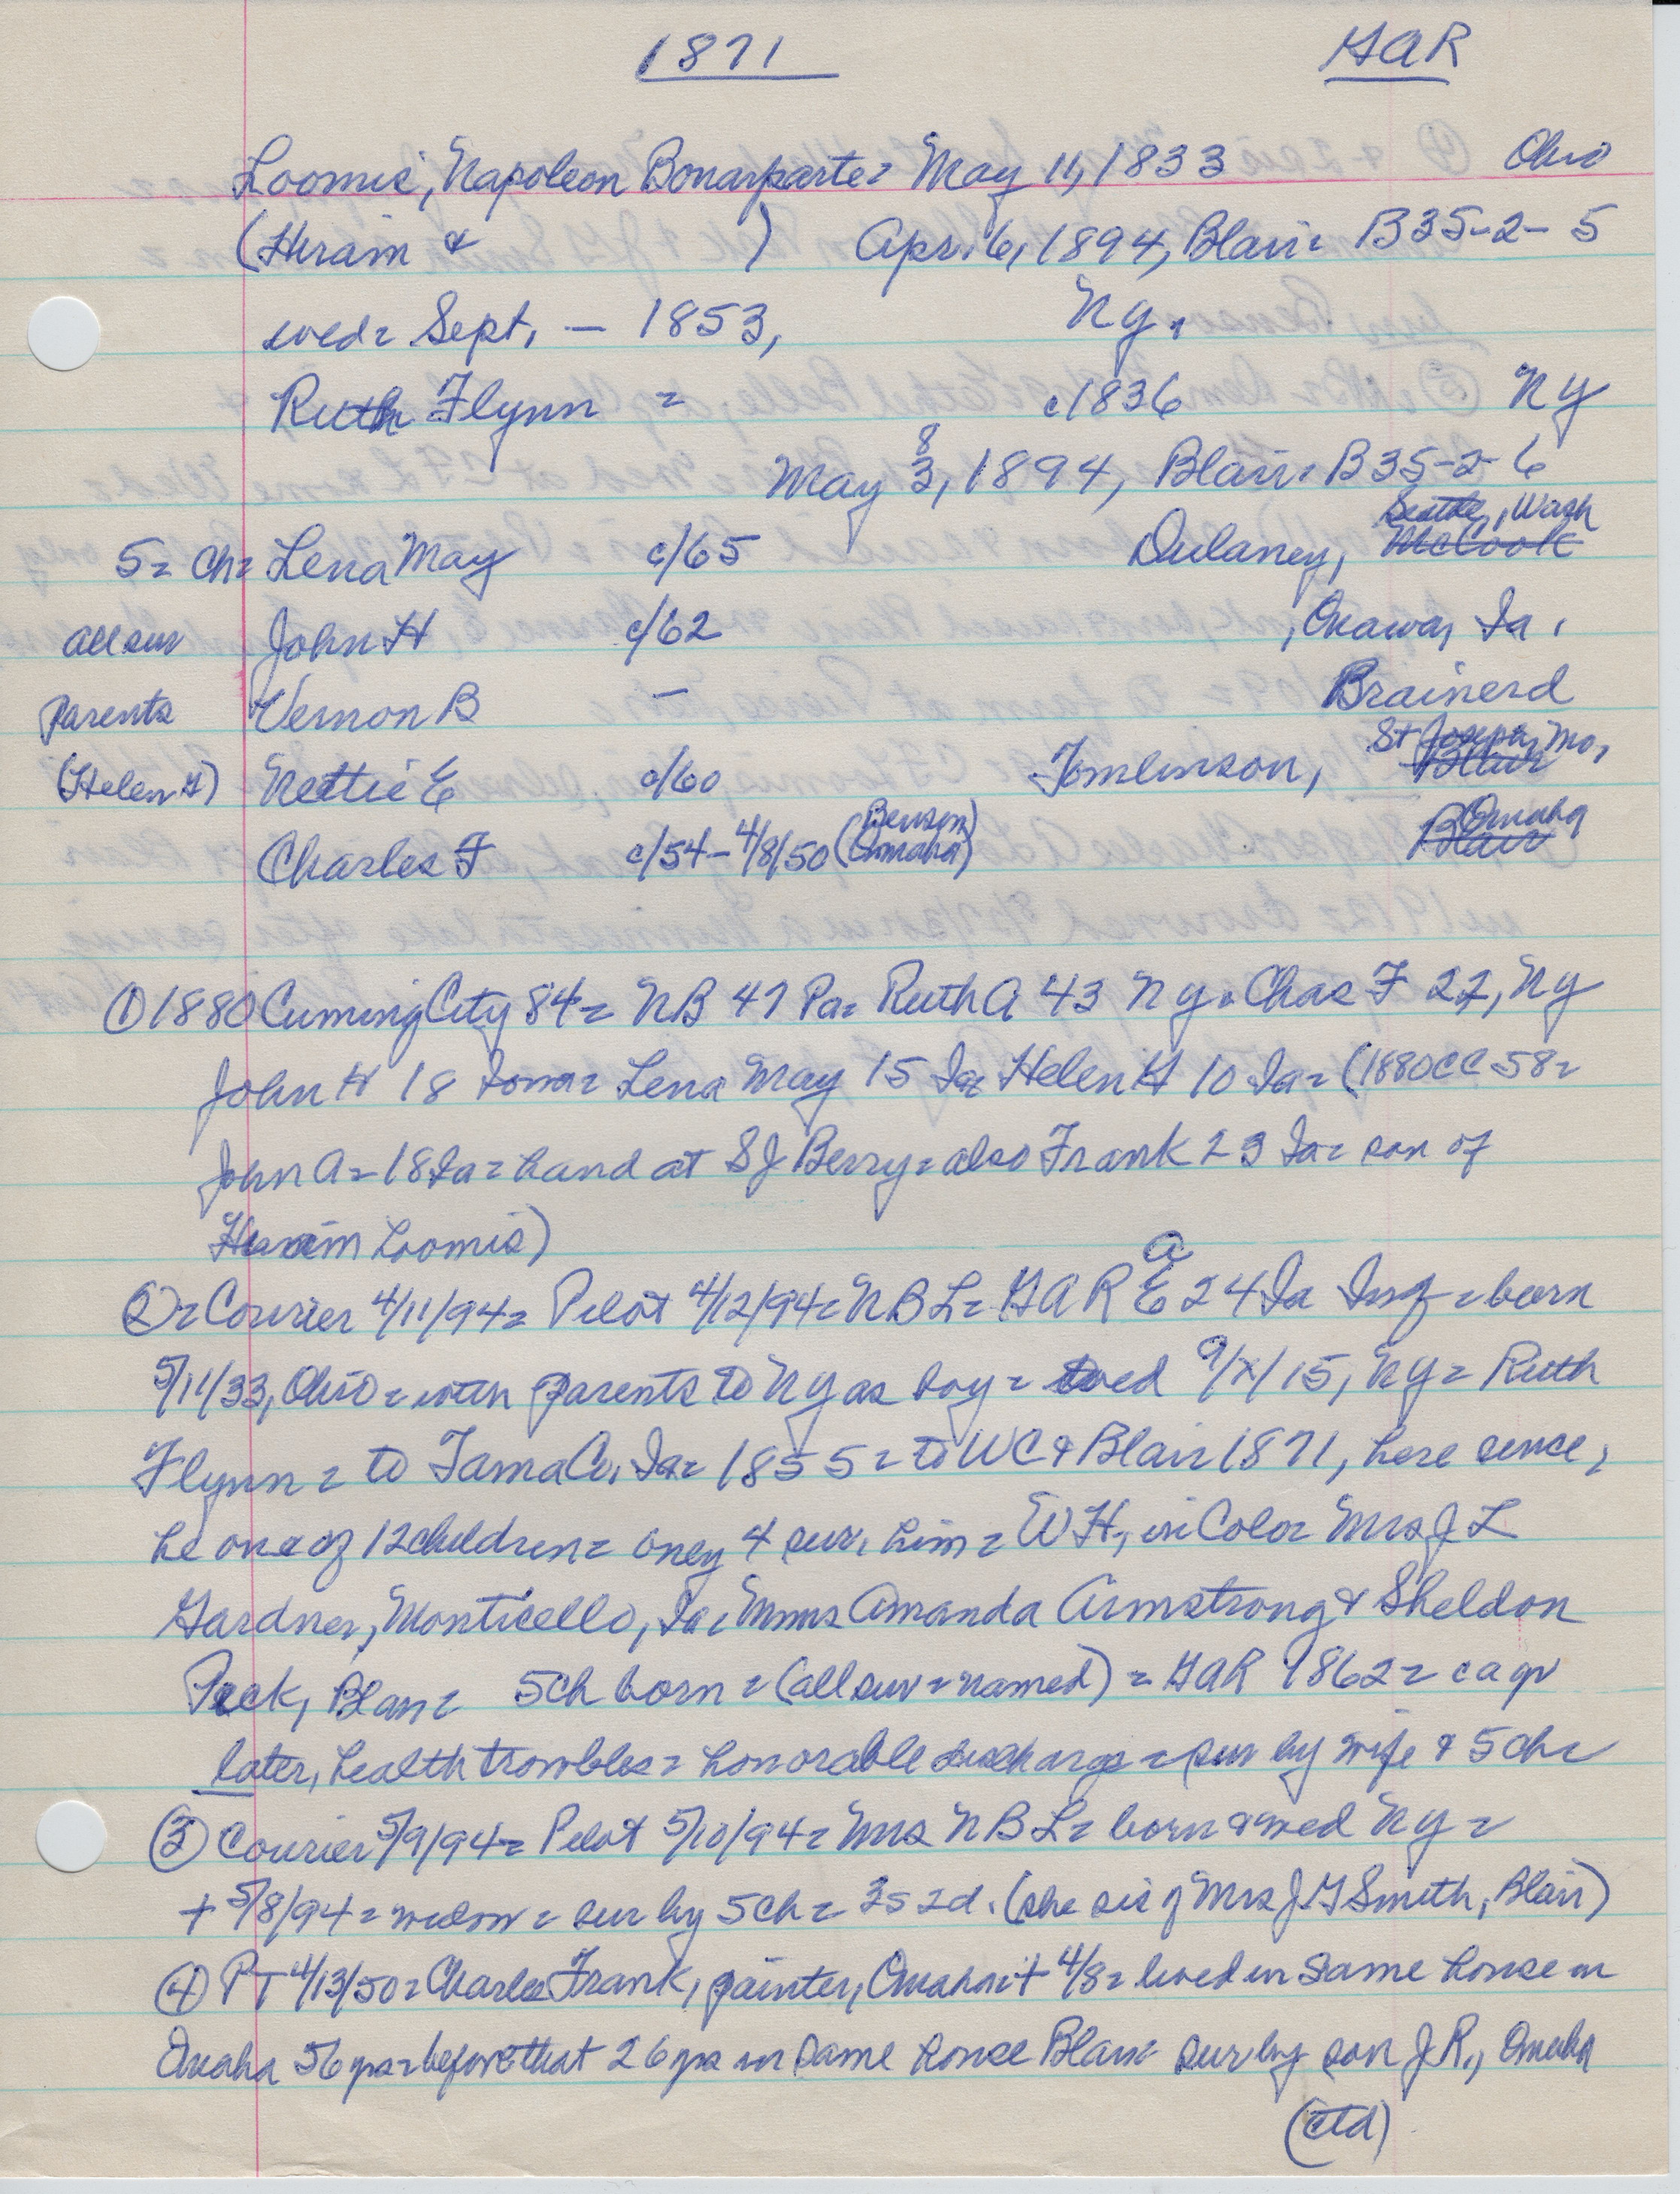 1871 GAR
Loomis, Napoleon Bonarparte= May 11, 1833 Ohio
(Hiram & ) Apr. 6, 1894, Blair= B35-2-5
wed= Sept. — 1853, Ny.
Ruth Flynn = c1836 Ny
8
May 3, 1894, Blair= B35-2-6
Seattle, Wash
5= ch= Lena May c/65 Dulaney, McCook
all sur John H c/62 , Onawa, Ia.
parents Vernon B — Brainerd
St Joseph, Mo,
(Helen H) Nettie E c/60 Tomlinson, Blair
Benson Omaha
Charles F c/54-4/8/50 (Omaha) Blair
① 1880 Cuming City 84= NB 47 Pa= Ruth A 43 Ny= Chas F 22, Ny
John H 18 Iowa= Lena May 15 Ia= Helen H 10 Ia= (1880 CC 58=
John A= 18 Ia= hand at S J Berry= also Frank 23 Ia= son of
Hiram Loomis)
a
②= Courier 4/11/94= Pilot 4/12/94= NBL= GAR E 24 Ia Inf= born
5/11/33, Ohio= with parents to Ny as boy= wed 9/x/15, Ny= Ruth
Flynn= to Tama Co, Ia= 1855= to WC & Blair 1871, here since,
he one of 12 children= only 4 sur. him= WH, in Colo= Mrs J L
Gardner, Monticello, Ia, Mmes Amanda Armstrong & Sheldon
Peck, Blair= 5 ch born= (all sur= named)= GAR 1862= ca yr
later, health troubles= honorable discharge= sur by wife & 5 ch=
③ Courier 5/9/94= Pilot 5/10/94= Mrs NBL= born & wed Ny=
+ 5/8/94= widow= sur by 5 ch= 3s 2d. (she sis of Mrs J G Smith, Blair)
④ PT 4/13/50= Charles Frank, painter, Omaha= + 4/8= lived in same house in
Omaha 56 yrs= before that 26 yrs in same house Blair sur by son J R., Omaha
(ctd)